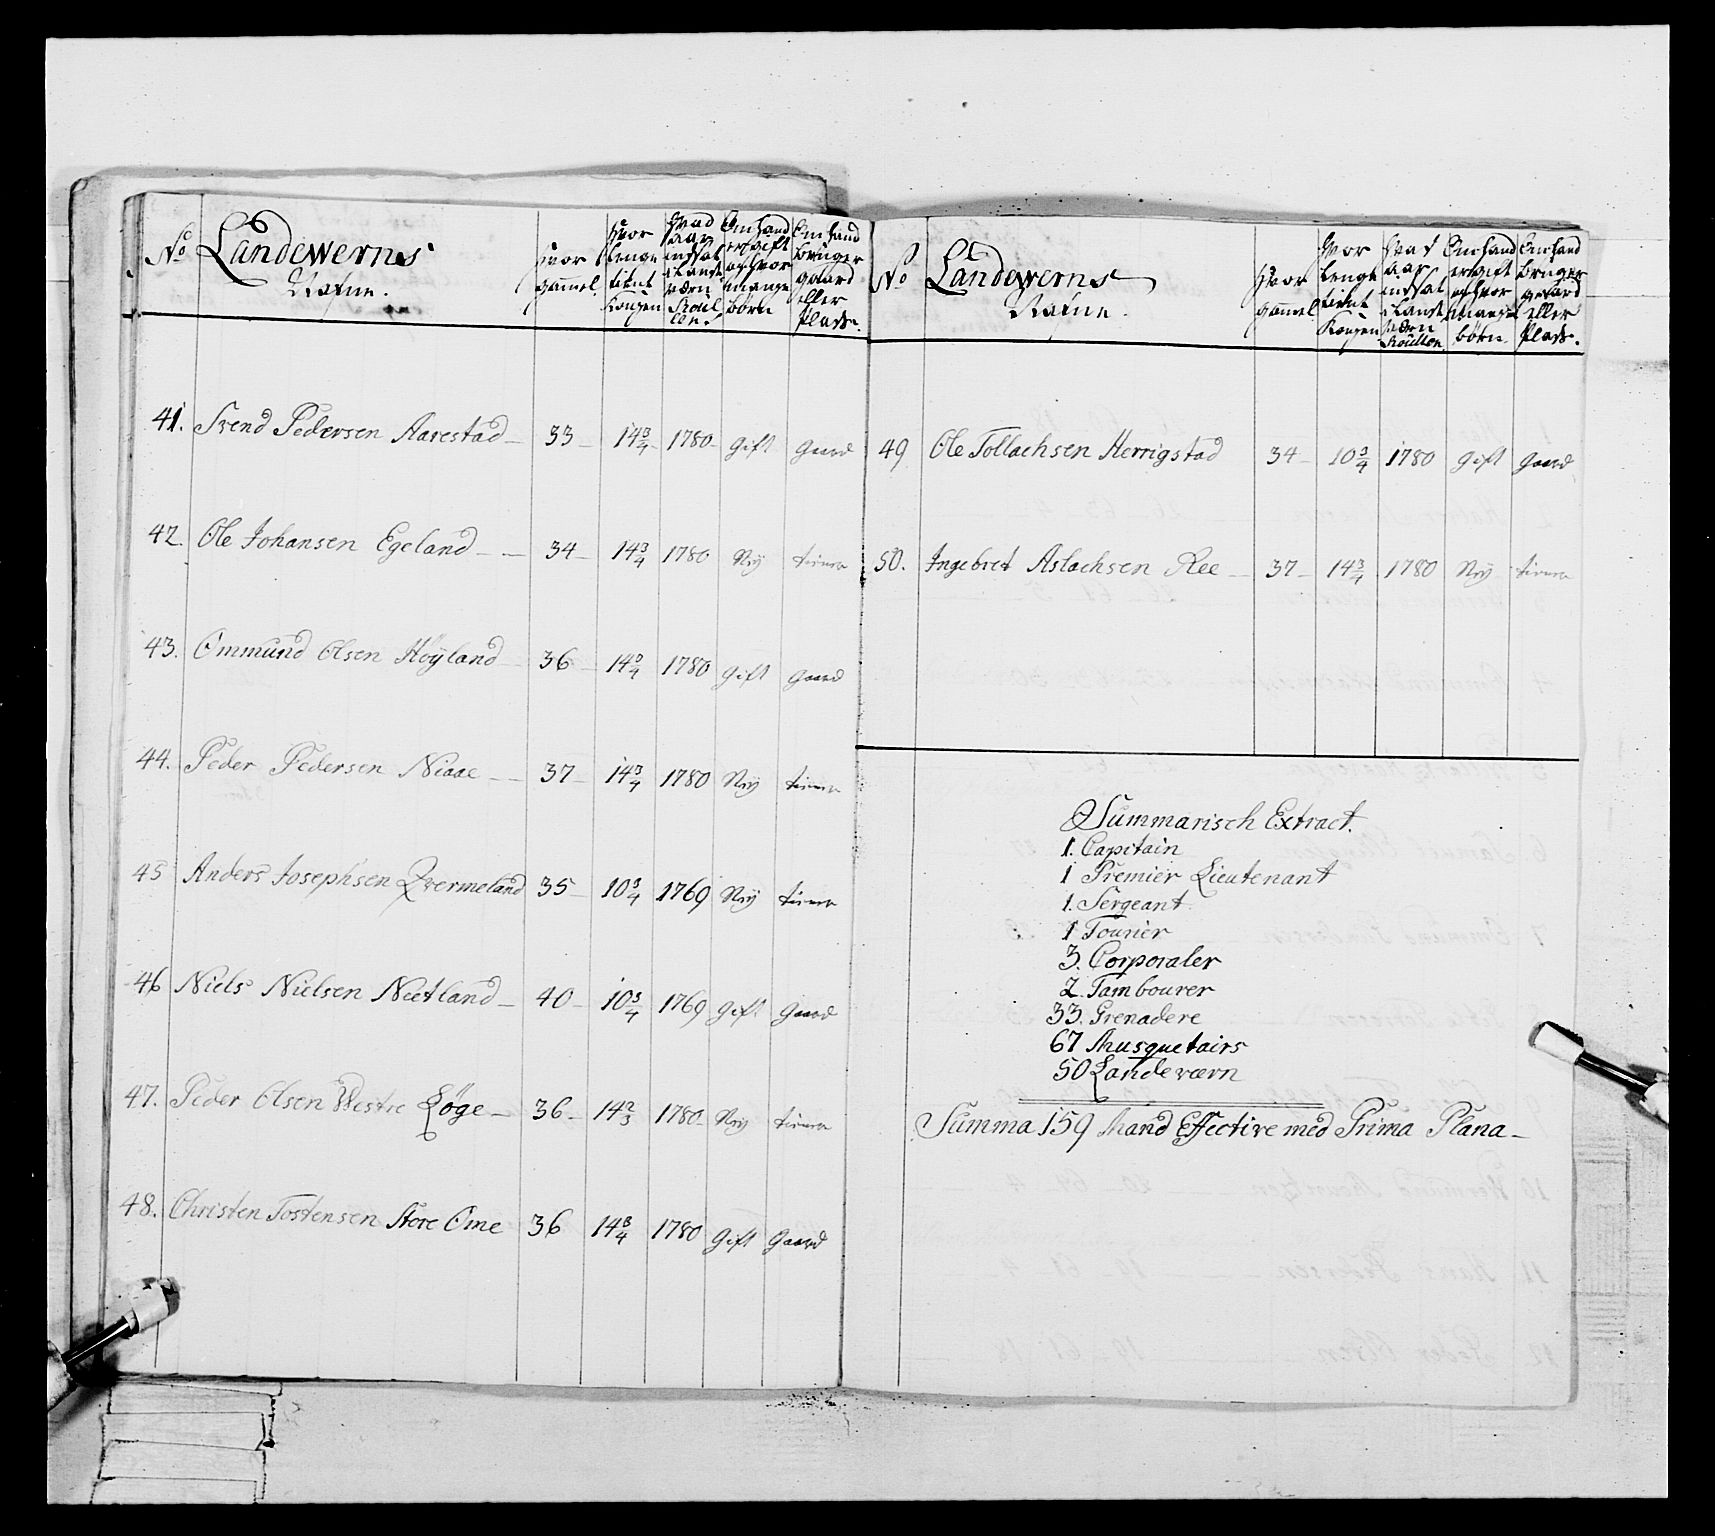 No Landewerns Nafne. Hvor gammel. Hvor lenge tient Kongen Hvad aar indsat i Lande værn Roullen. Om hand er gift og hvor mange børn Om hand bruger gaard eller Plads.
41. Svend Pedersen Aarestad 33 14 3/4 1780 gift gaard
42. Ole Johansen Egeland 34 14 3/4 1780 Neÿ tiener
43. Ommund Olsen Höÿland 36 14 3/4 1780 gift gaard
44. Peder Pedersen Niaae 37 14 3/4 1780 Neÿ tiener
45 Anders Josephsen Qvermeland 35 10 3/4 1769 Neÿ tiener
46 Niels Nielsen Neetland 40 10 3/4 1769 gift gaard
47. Peder Olsen Westre Løge 36 14 2/3 1780 Neÿ tiener
48. Christen Tostensen Store Ome 36 14 3/4 1780 gift gaard
No Landewerns Nafne. Hvor gammel Hvor lenge tient Kongen Hvat aar indsat i Lande værn Roullen Om hand er gift og hvor mange børn Om hand bruger gaard eller Plads.
49 Ole Tollachsen Herrigstad 34 10 3/4 1780 gift gaard
50. Ingebret Aslachsen Ree 37 14 3/4 1780 Neÿ tiener
Summarisch Extract.
1. Capitain
1 Premier Lieutenant
1. Sergeant
1 Fourier
3. Corporaler
2. Tambourer
33. Grenadere
67 Musquetairs
50 Landeværn
Summa 159 Mand Effective med Prima Plana